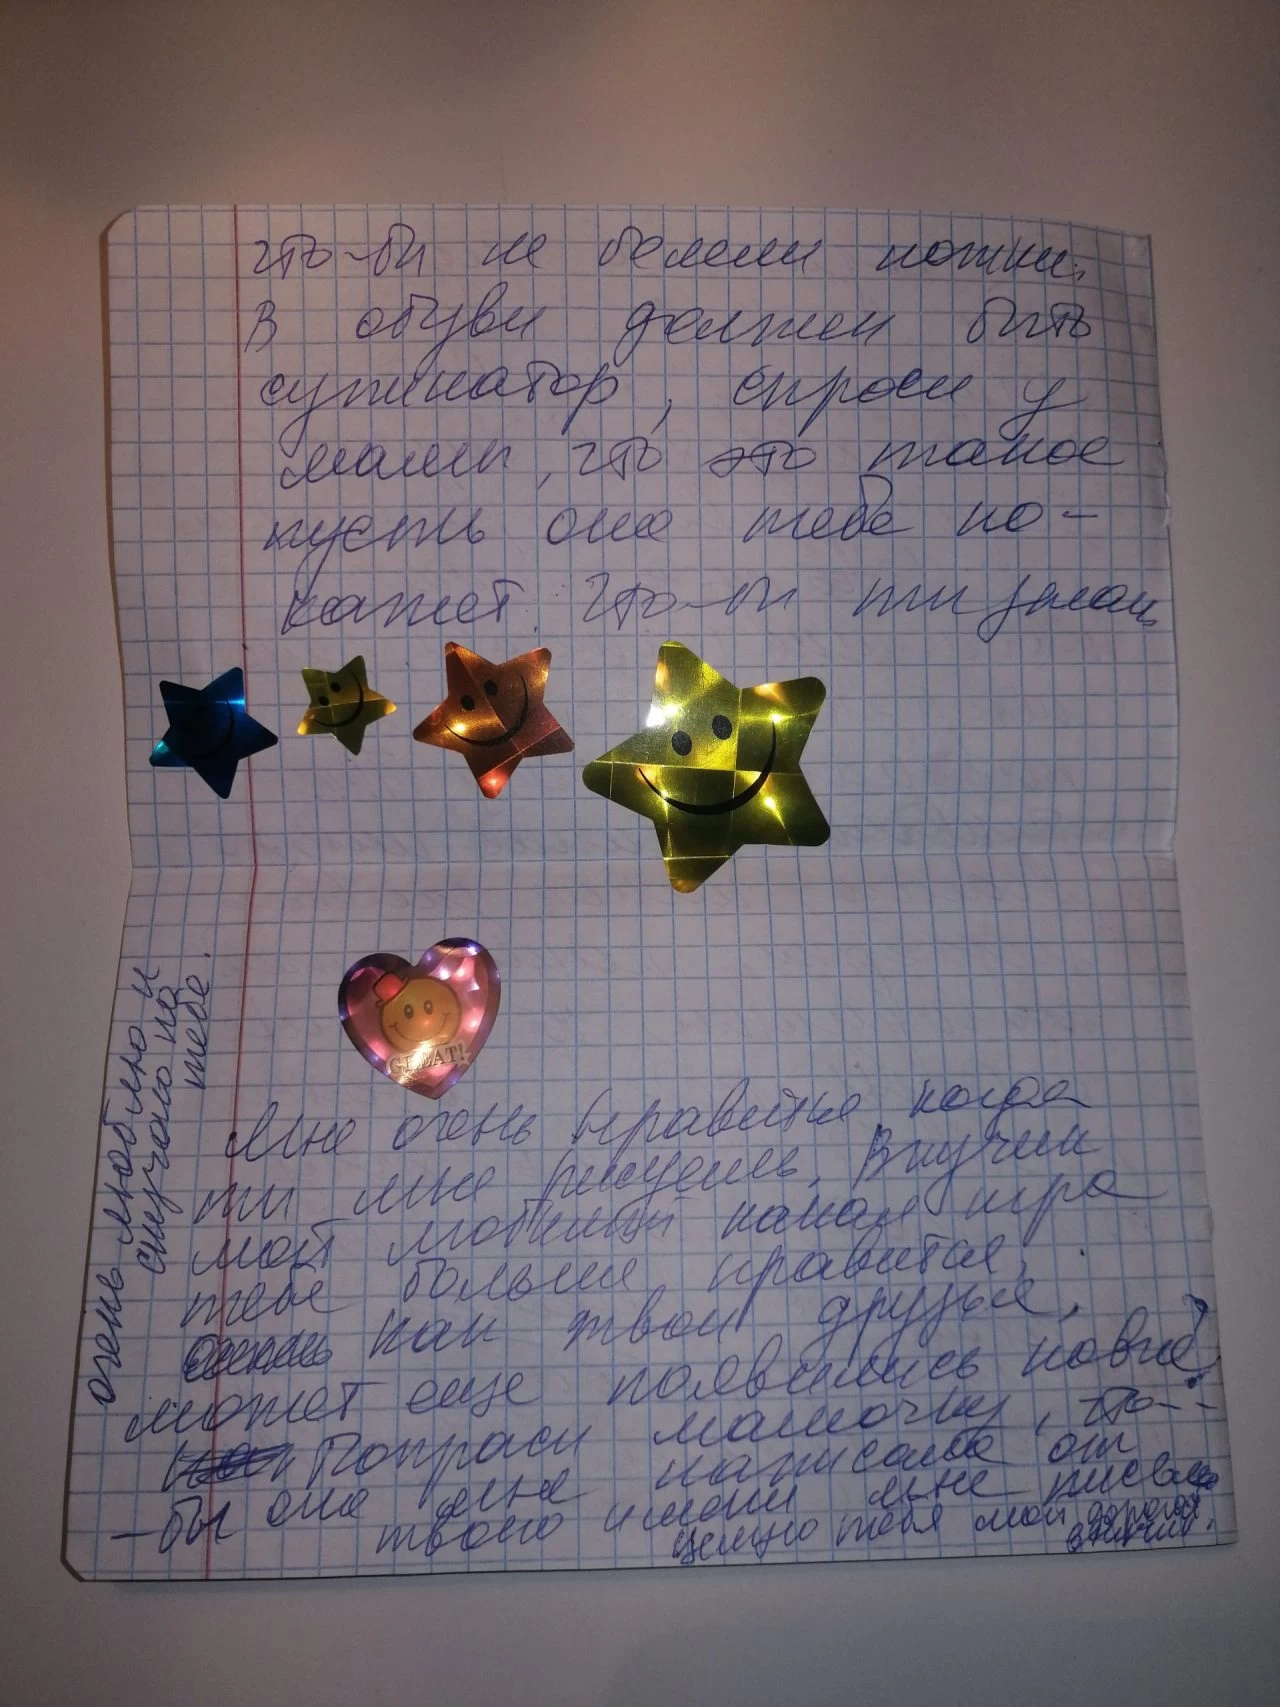 что-бы не болели ножки.
В обуви должен быть
супинатор, спроси у
мамы, что это такое
пусть она тебе по-
кажет. Что-бы ты знал,
GREAT!
Мне очень нравится когда
ты мне рисуешь. Внучек
мой любимый какая игра
тебе больше нравится,
как твои друзья,
может еще появились новые?
Попроси мамочку, что-
-бы она мне написала от
твоего имени мне письмо
целую тебя мой дорогой
внучек.
очень люблю и
скучаю по
тебе.